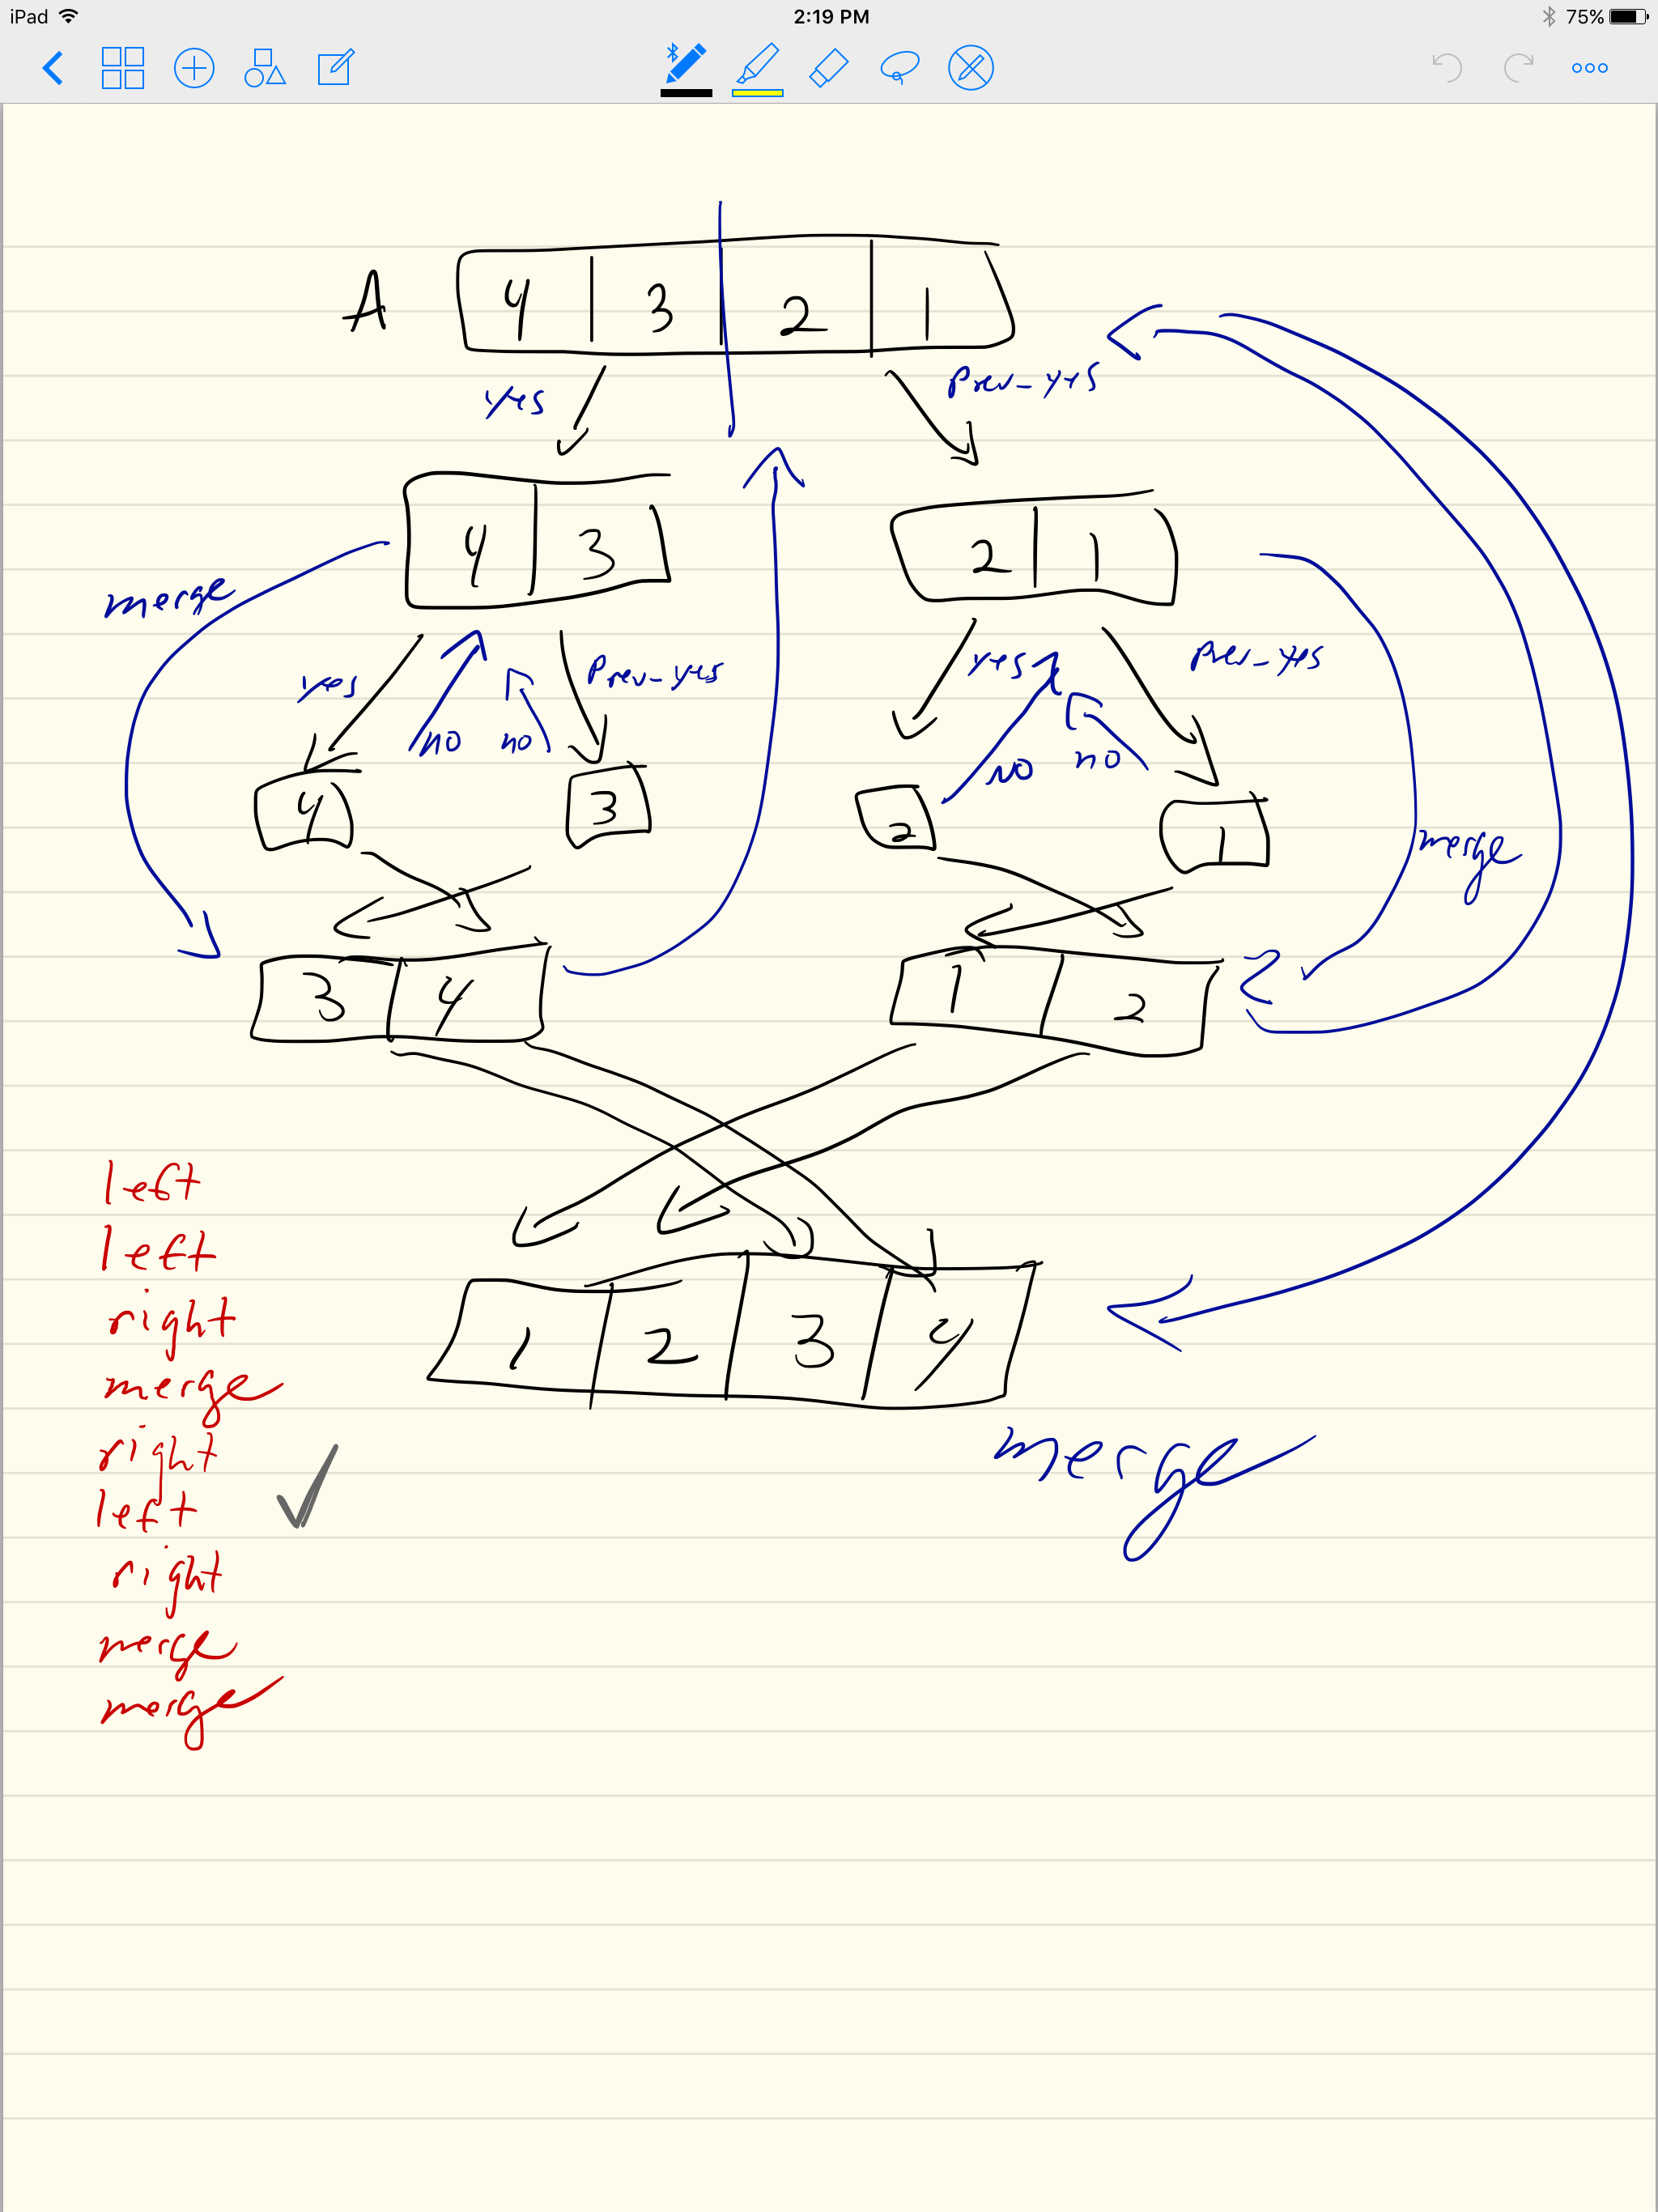 iPad 2:19 PM 75%
A 4 3 2 1
yes Prev-yes
4 3 2 1
merge
yes no no Prev-yes yes NO no Prev-yes
4 3 2 1
merge
3 4 1 2
left
left
right
merge
right
left
right
merge
merge
1 2 3 4
merge